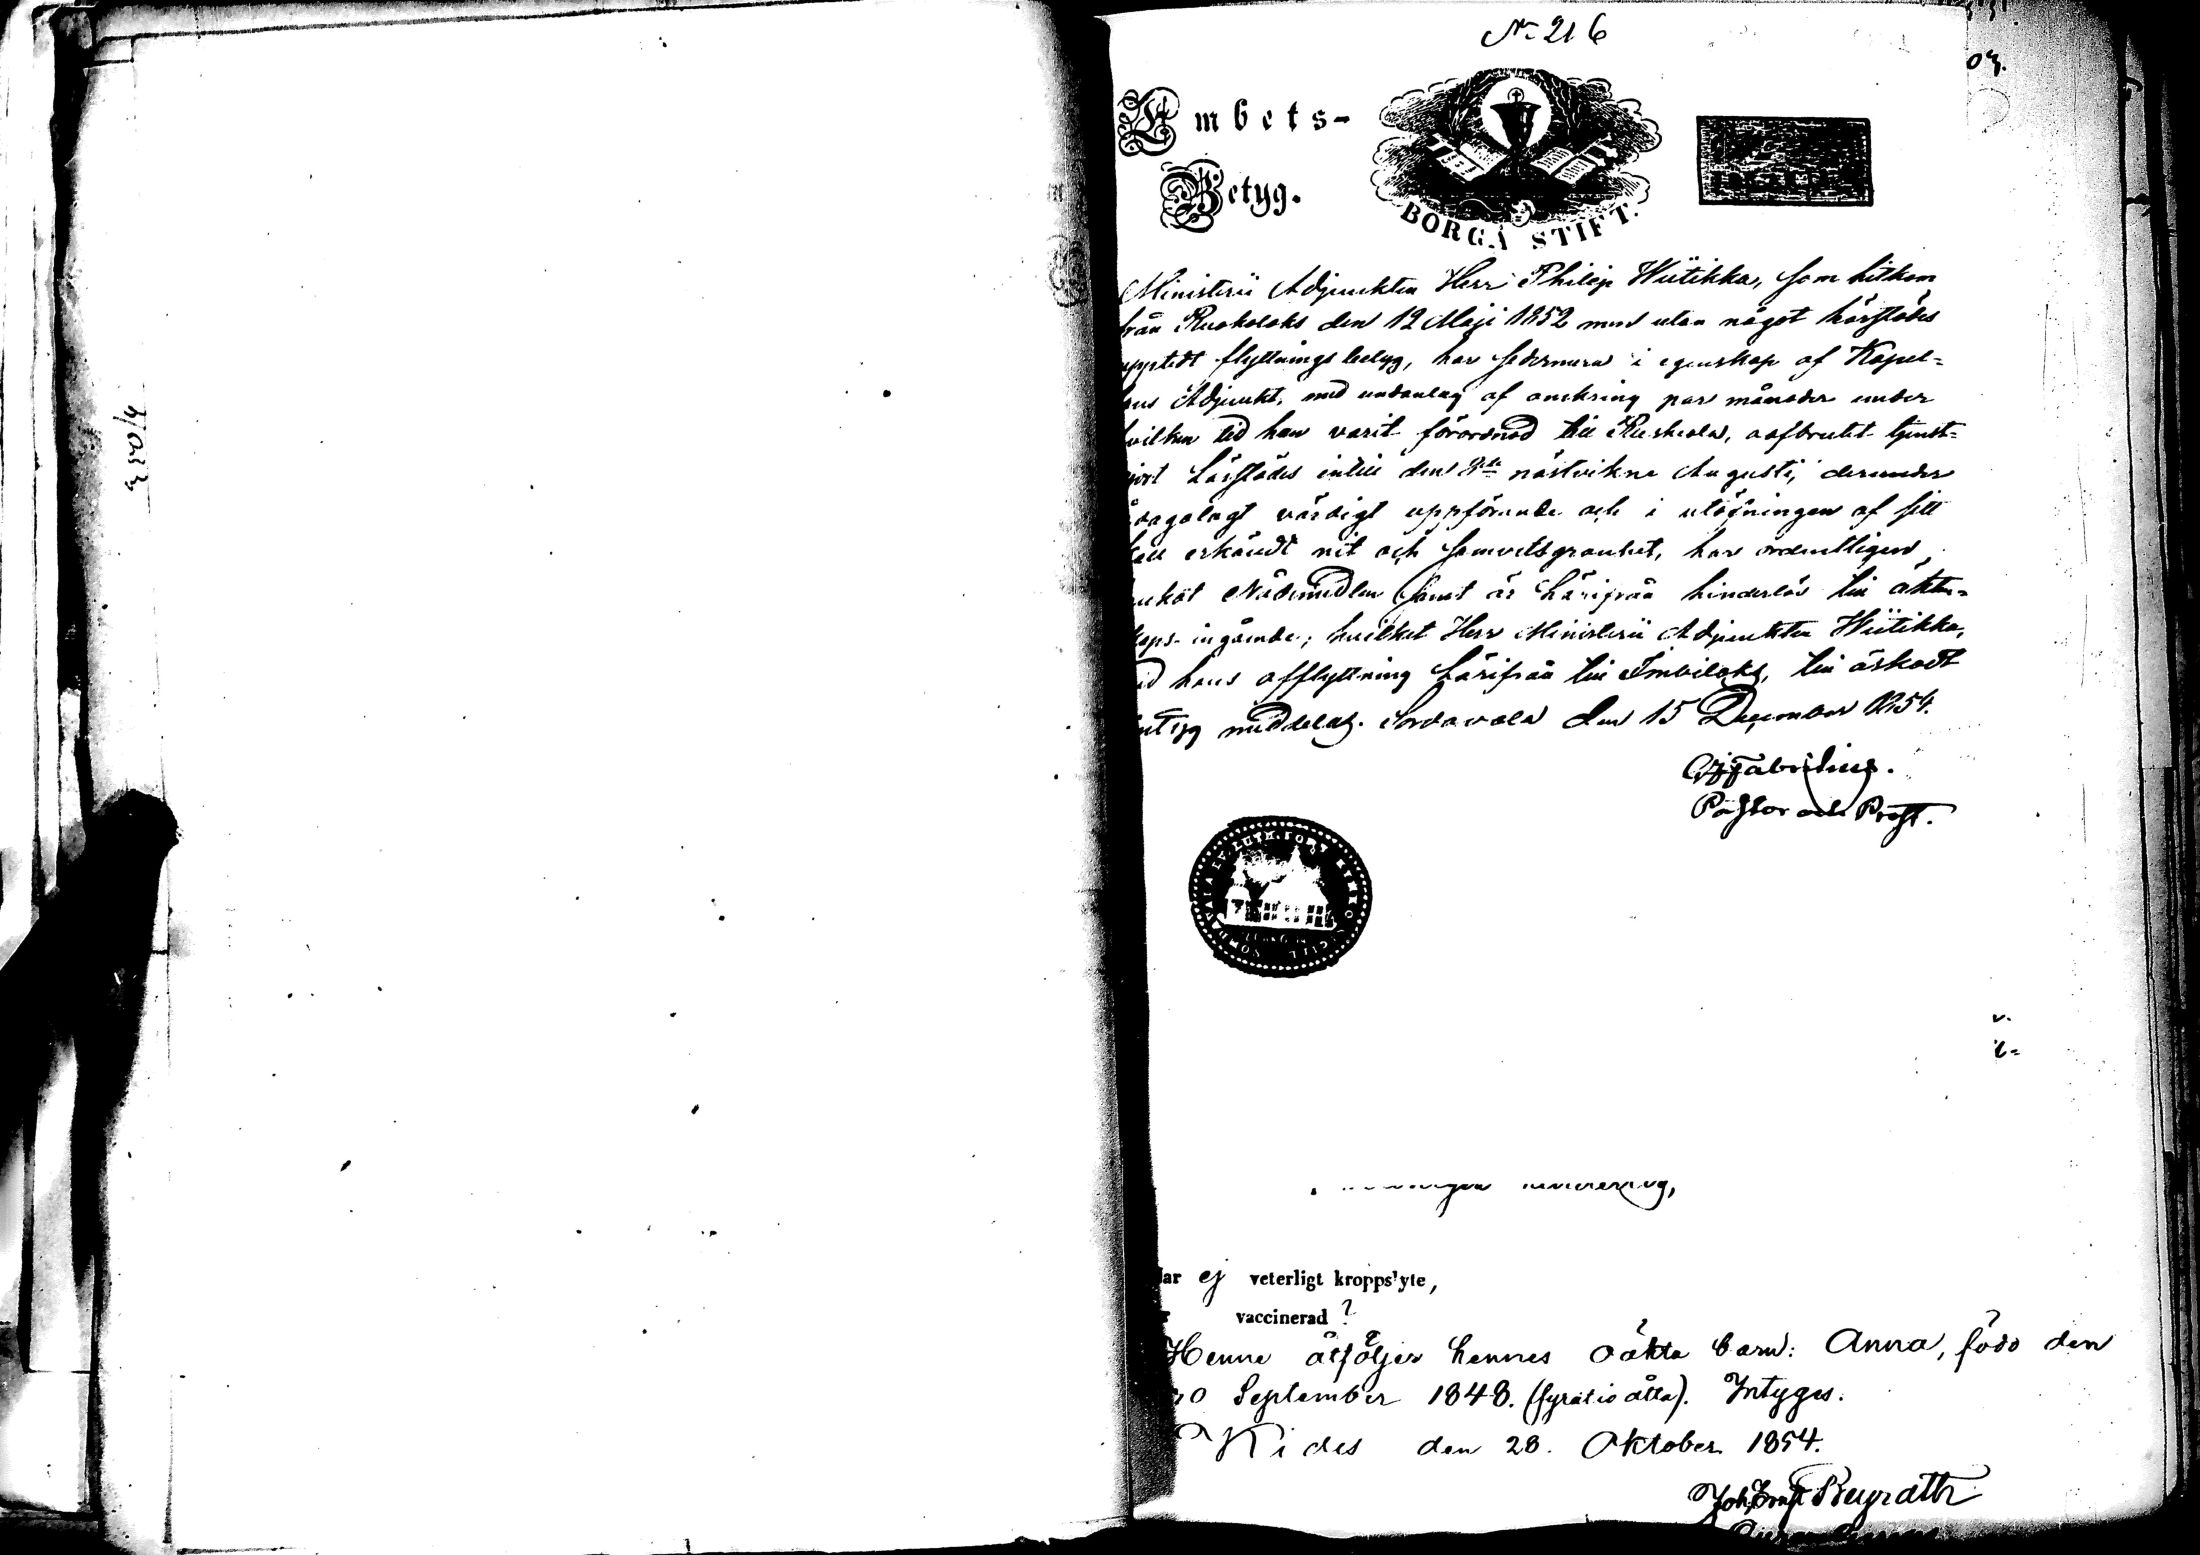 No 216
Embets-
Betyg.
BORGÅ STIFT.
Ministerii Adjunkten Herr Philip Wiitikka, som hitkom
från Ruokolaks den 12 Maji 1852 med utan något härstädes
upptedt flyttnings betyg, har sedermera i egenskap af Kapel=
Adjunkt, med undantag af omkring par månader under
hvilken tid han varit förordnad till Ruskeala, oafbrutit tjenst=
gjort härstädes intill den nästvikne Augusti, derunder
ådagalagt värdigt uppförande och i utöfningen af sitt
kall erkändt nit och samvetsgranhet, har ordentligen
brukat Nådemedlen samt är härifrån hinderlös till äkten=
skaps ingående; hvilket Herr Ministerii Adjunkten Wiitikka,
vid hans afflyttning härifrån till Imbilaks, till äskadt
intyg meddelas. Sordavala den 15 December 1854.
Fabritius.
Pastor och Prost.
Har ej veterligt kroppslyte,
vaccinerad ?
Henne åtföljer hennes oäkta barn: Anna, född den
September 1848. (fyratio åtta). Intygas.
Kides den 28. Oktober 1854.
Joh. Ernst Beyrath